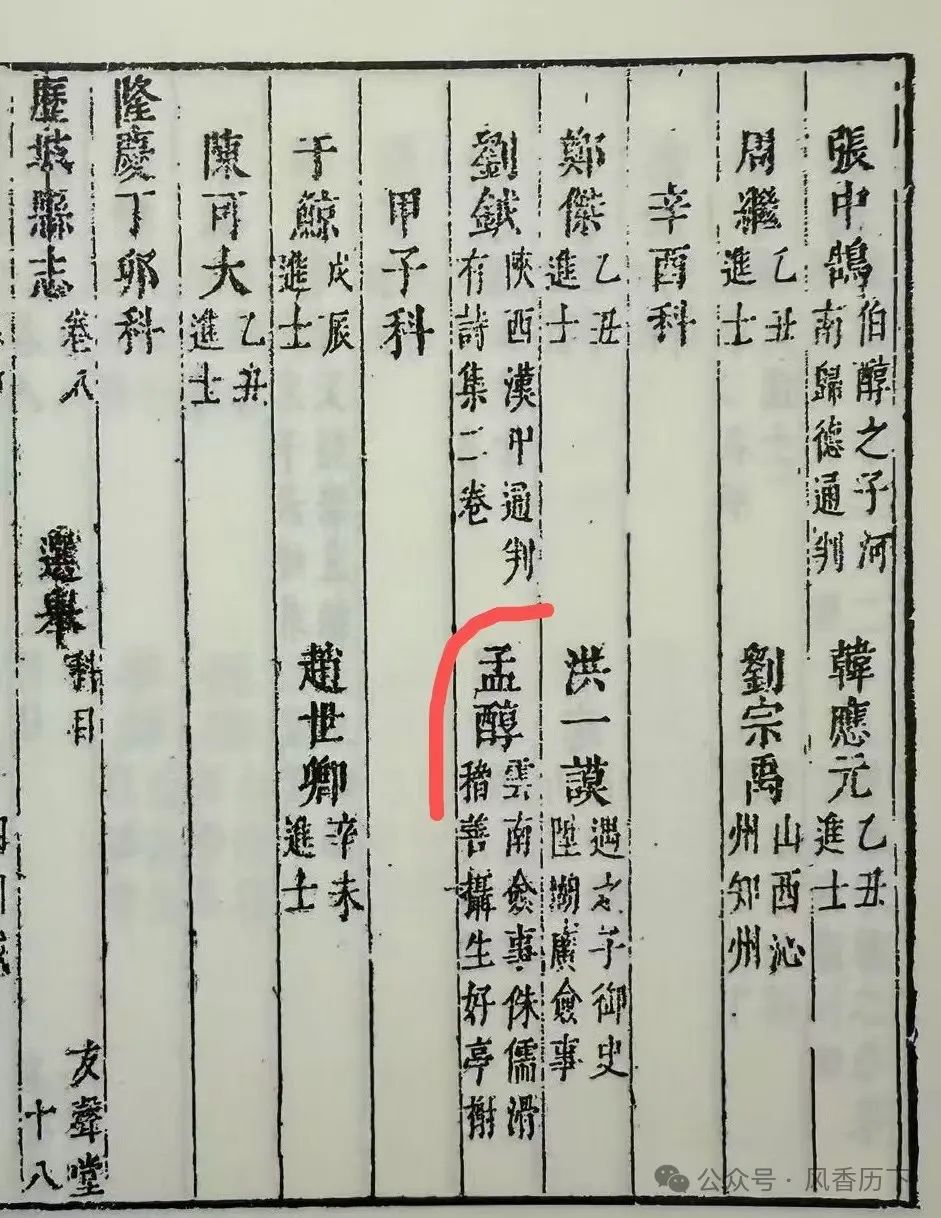 張中鵠 伯醇之子河南歸德通判
韓應元 乙丑進士
周繼 乙丑進士
劉宗禹 山西沁州知州
辛酉科
鄭傑 乙丑進士
洪一謨 遇之子御史陞湖廣僉事
劉鉞 陝西漢中通判有詩集二卷
孟醇 雲南僉事侏儒滑稽善攝生好亭榭
甲子科
于鯨 戊辰進士
趙世卿 辛未進士
陳可大 乙丑進士
隆慶丁卯科
歷城縣志 卷八 選舉 科目 友聲堂 十八
公众号 · 风香历下